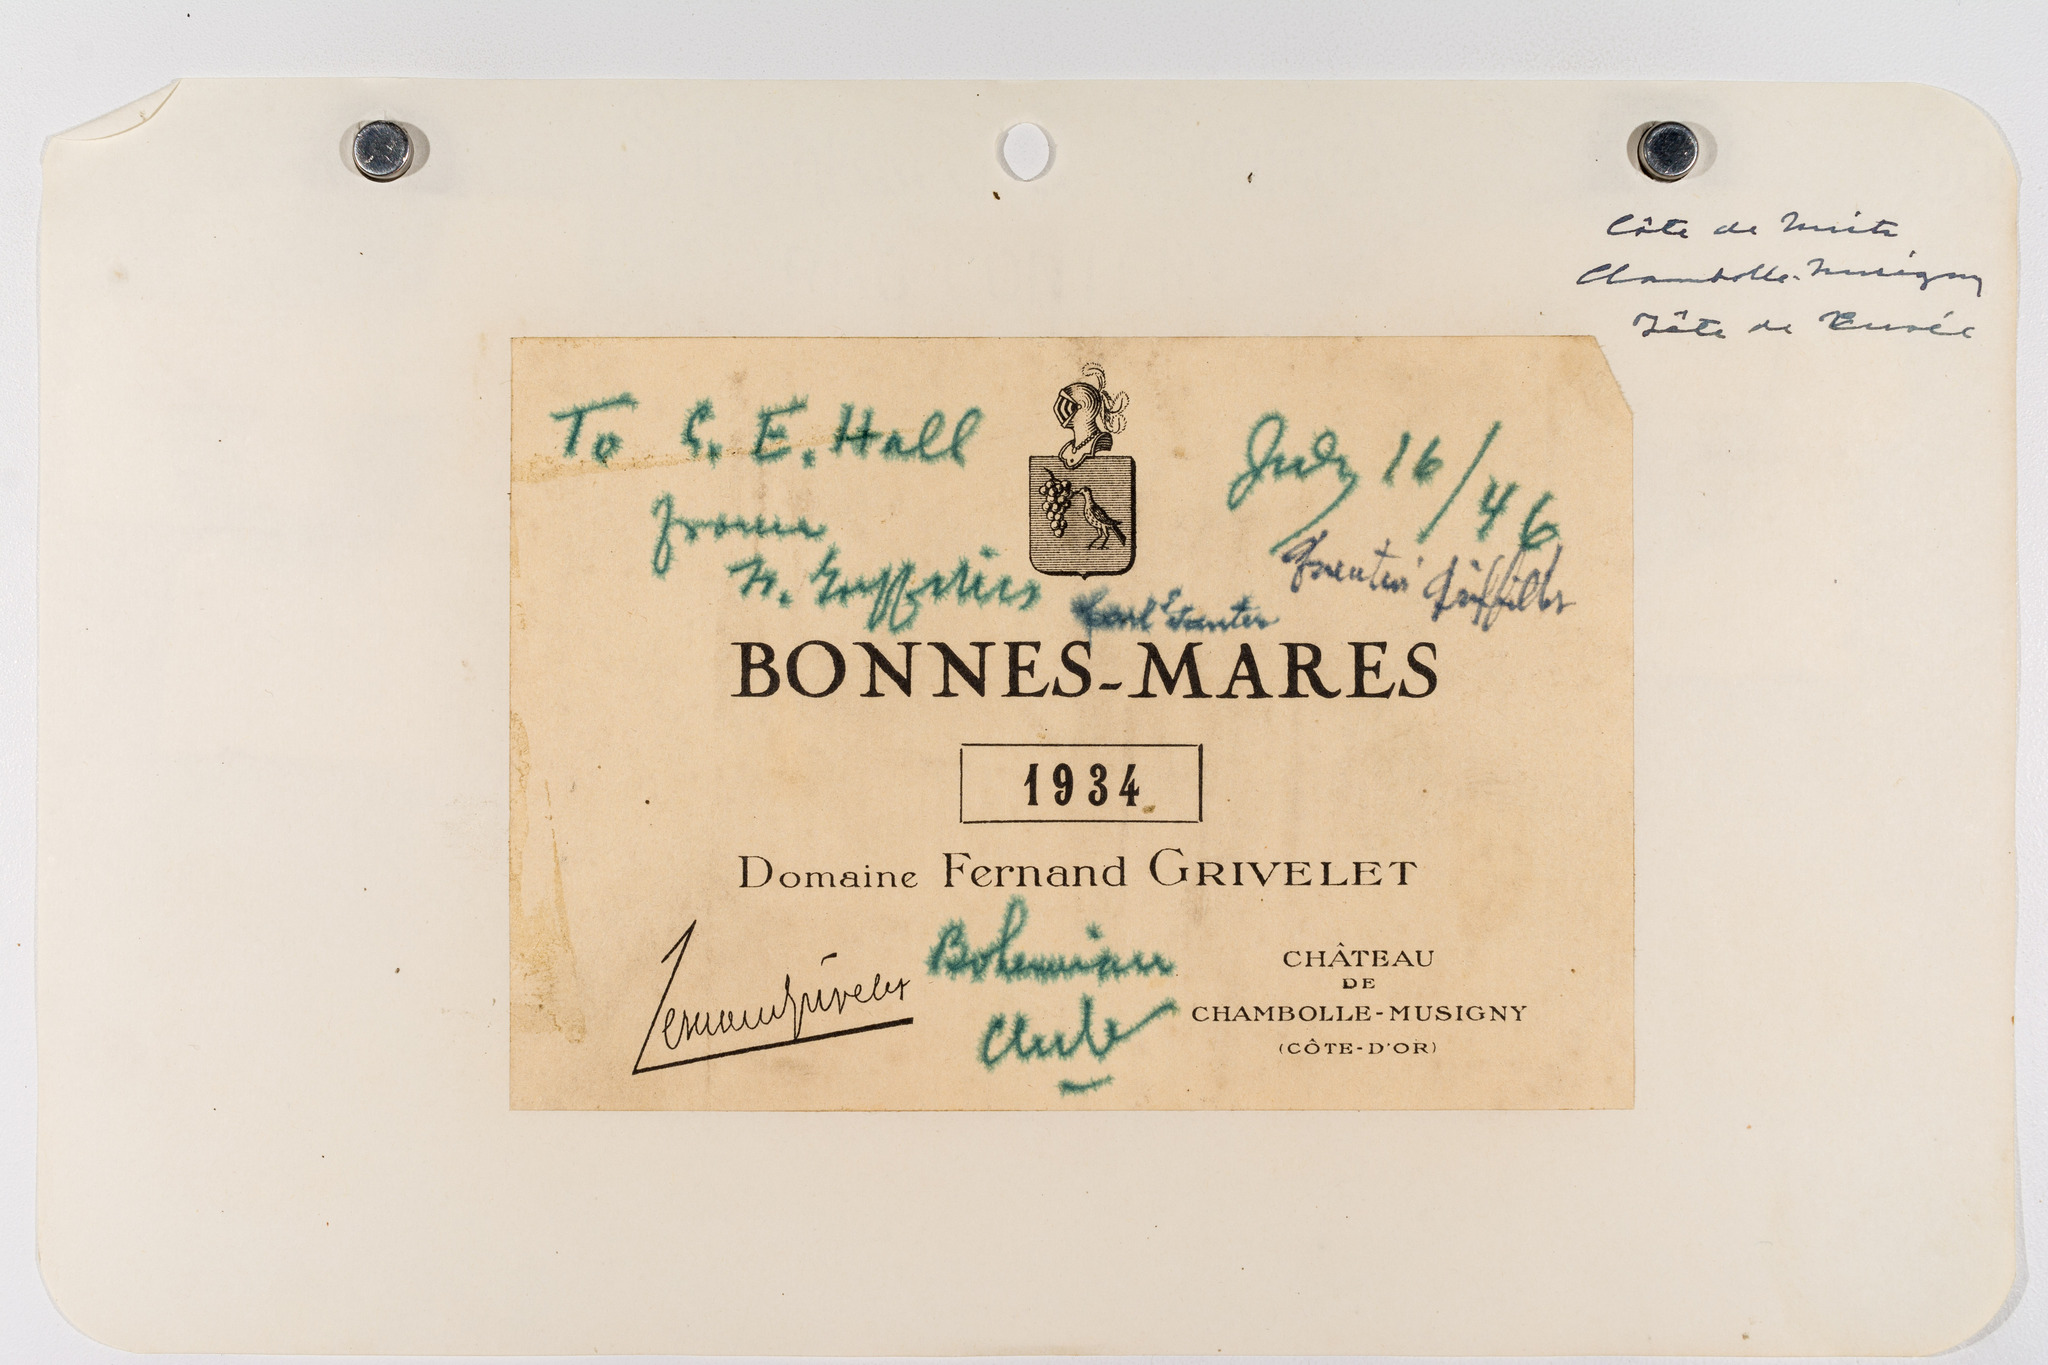 Côte de Nuits
Chambolle-Musigny
Tête de Cuvée
To G. E. Hall
July 16/46
from
W.
Carl
BONNES-MARES
1934
Domaine Fernand GRIVELET
Fernand Grivelet
Bohemian
Club
CHÂTEAU
DE
CHAMBOLLE-MUSIGNY
(CÔTE-D'OR)